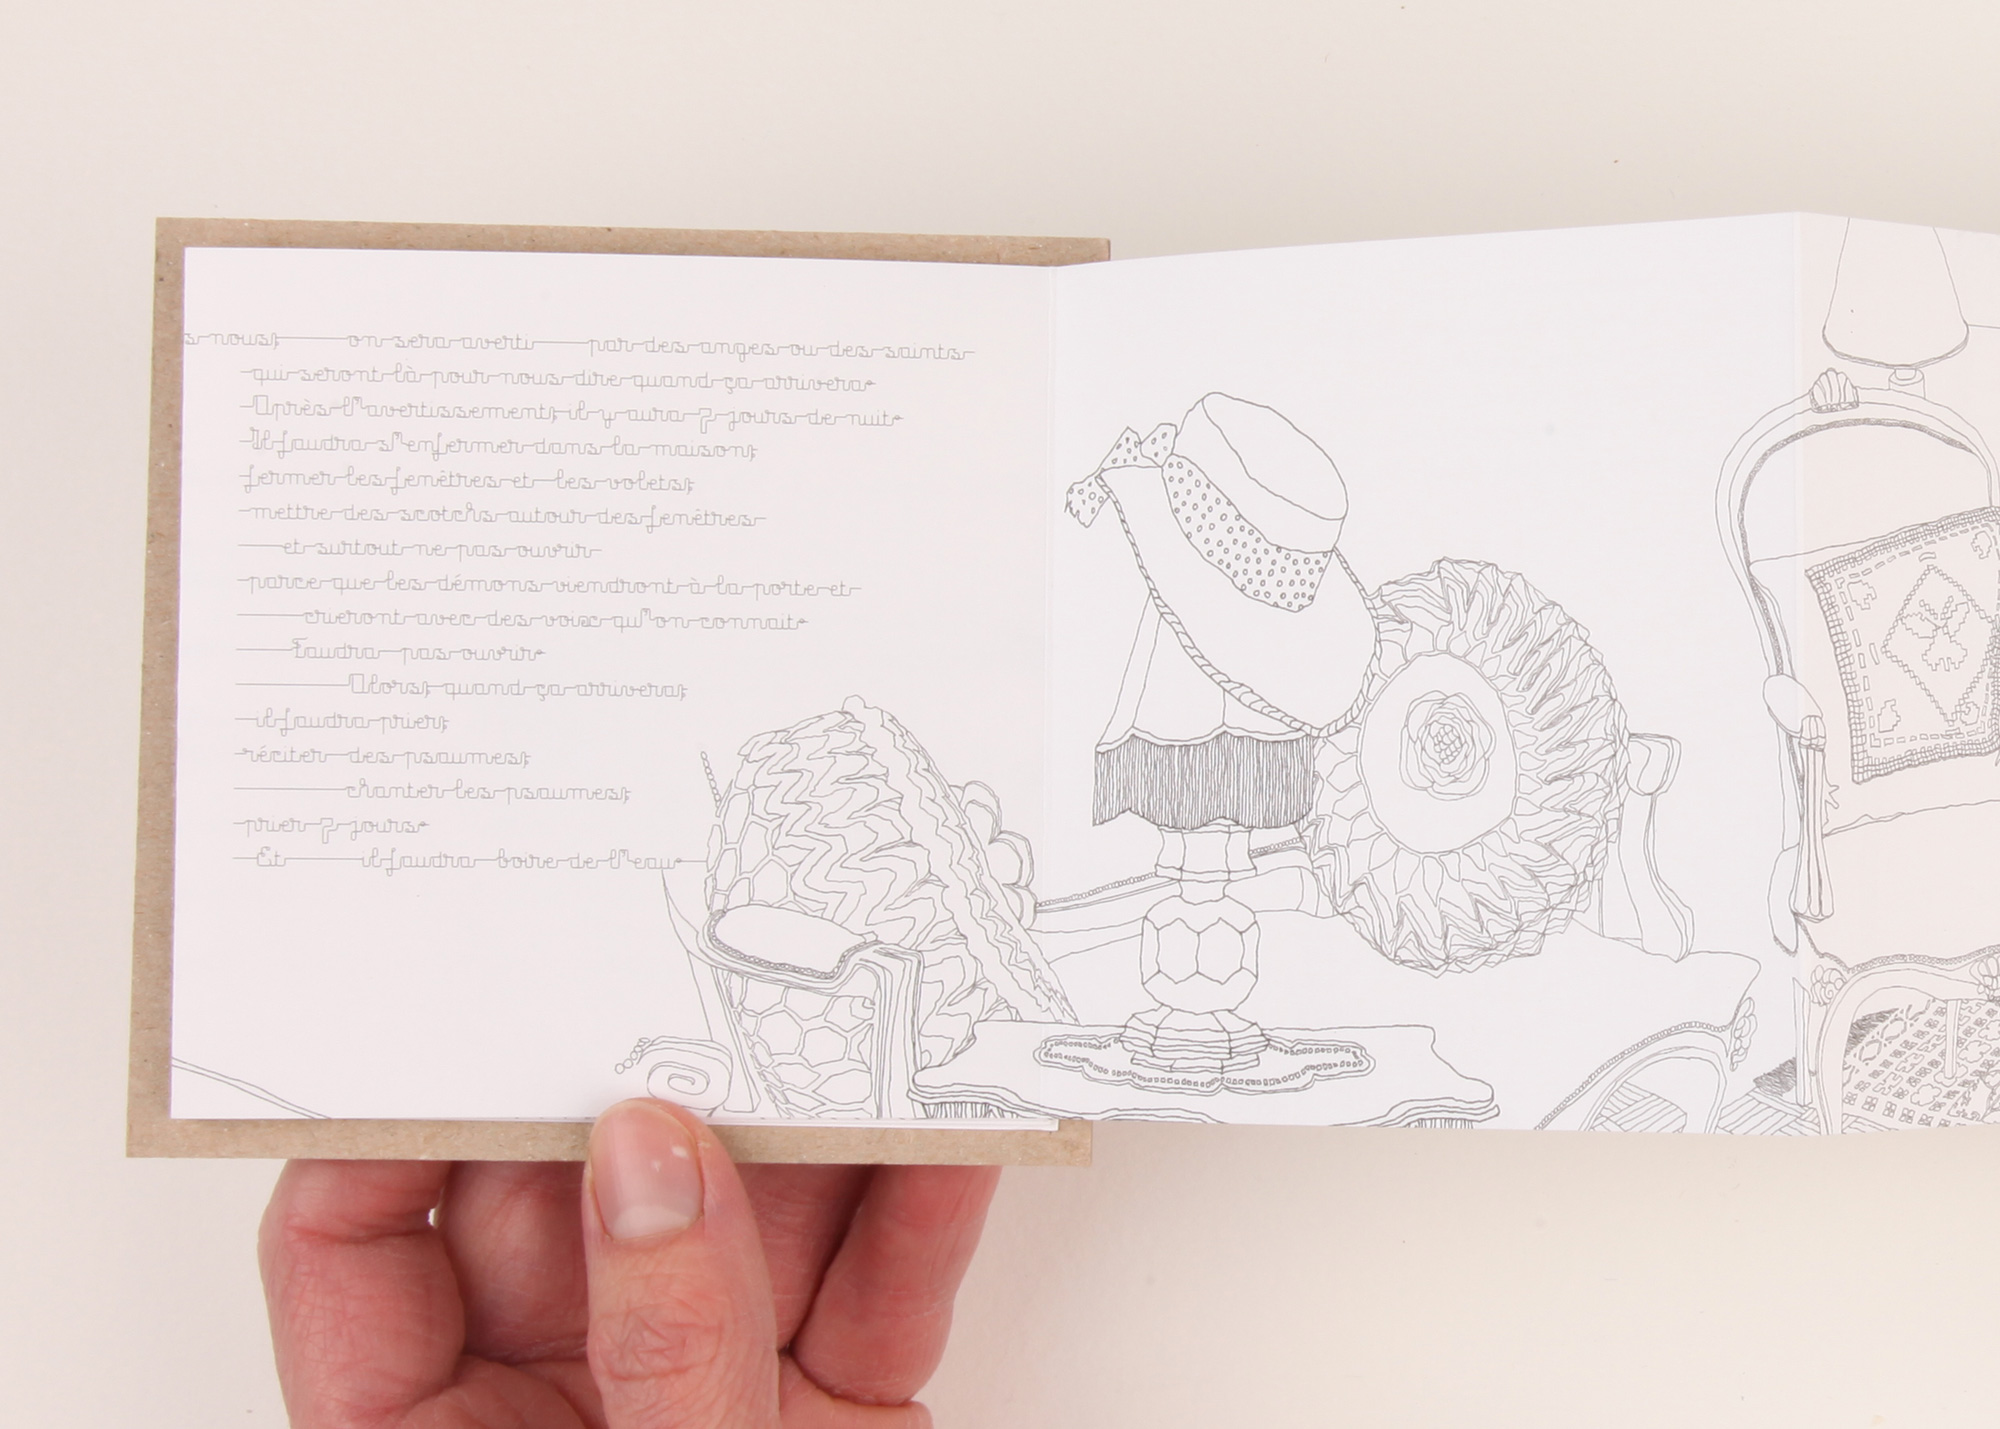 s nous, on sera averti par des anges ou des saints
qui seront là pour nous dire quand ça arrivera
Après l'avertissement, il y aura 7 jours de nuit
Il faudra s'enfermer dans la maison,
fermer les fenêtres et les volets,
mettre des scotchs autour des fenêtres
et surtout ne pas ouvrir
parce que les démons viendront à la porte et
crieront avec des voix qu'on connait
Faudra pas ouvrir
Alors, quand ça arrivera,
il faudra prier,
réciter des psaumes,
chanter les psaumes,
prier 7 jours
Et il faudra boire de l'eau